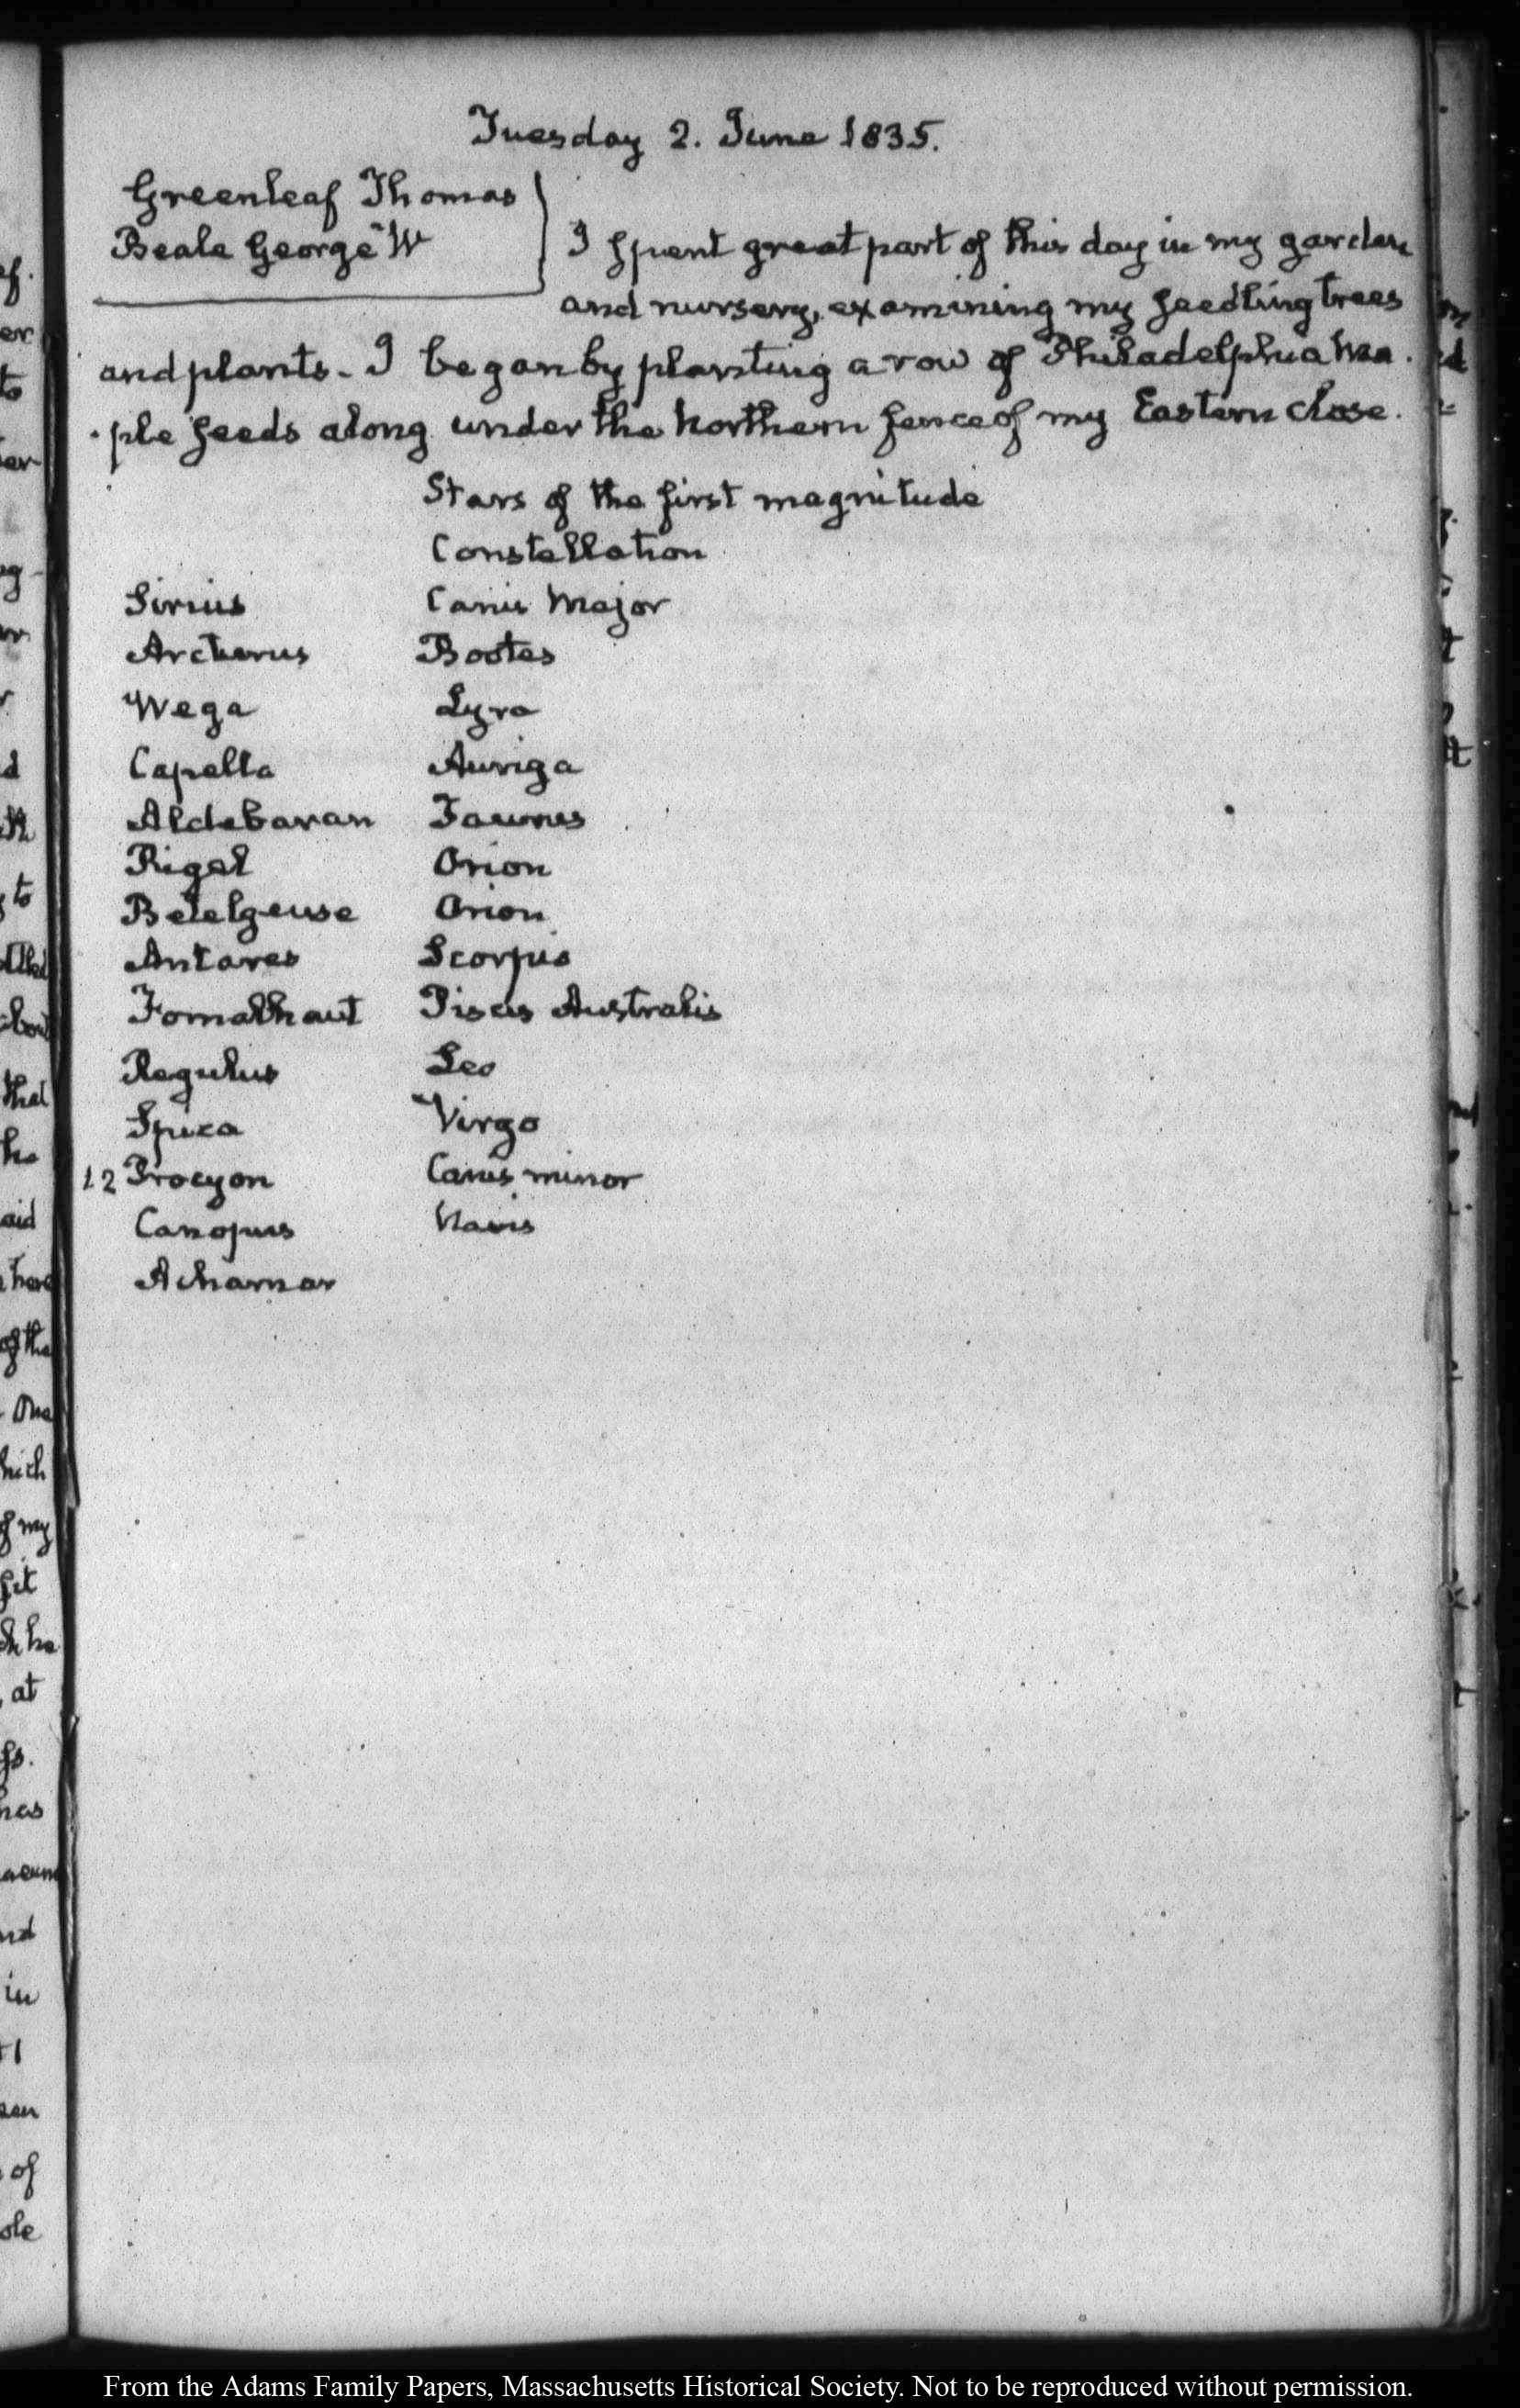 Tuesday 2. June 1835.
Greenleaf Thomas
Beale George W
I spent great part of this day in my garden
and nursery, examining my seedling trees
and plants - I began by planting a row of Philadelphia Ma-
-ple seeds along under the Northern fence of my Eastern close.
Stars of the first magnitude
Constellation
Sirius Canis Major
Arcturus Bootes
Wega Lyra
Capella Auriga
Aldebaran Taurus
Rigel Orion
Betelgeuse Orion
Antares Scorpio
Fomalhaut Piscis Australis
Regulus Leo
Spica Virgo
12 Procyon Canis minor
Canopus Navis
Acharnar
From the Adams Family Papers, Massachusetts Historical Society. Not to be reproduced without permission.